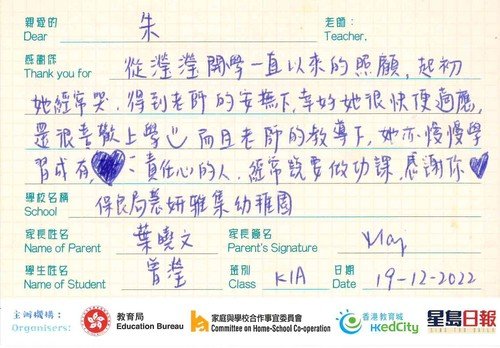 親愛的 朱 老師：
Dear Teacher,
感謝你
Thank you for 從瀅瀅開學一直以來的照顧，起初
她經常哭，得到老師的安撫下，幸好她很快便適應，
還很喜歡上學 而且老師的教導下，她亦慢慢學
習成有 責任心的人，經常說要做功課，感謝你
學校名稱
School 保良局慧妍雅集幼稚園
家長姓名 葉曉文 家長簽名
Name of Parent Parent's Signature May
學生姓名 曾瀅 班別 日期
Name of Student Class K1A Date 19-12-2022
主辦機構：
Organisers:
教育局
Education Bureau
家庭與學校合作事宜委員會
Committee on Home-School Co-operation
香港教育城
HKedCity
星島日報